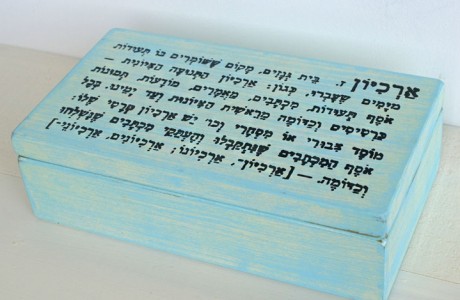 אַרְכִיּוֹן ז. בֵּית גְּנָזִים, מָקוֹם שֶׁשּׁוֹמְרִים בּוֹ תְּעוּדוֹת
מִיָּמִים שֶׁעָבְרוּ, כְּגוֹן: אַרְכִיּוֹן הַתְּנוּעָה הַצִּיּוֹנִית –
אֹסֶף תְּעוּדוֹת, מִכְתָּבִים, מַאֲמָרִים, מוֹדָעוֹת, תְּמוּנוֹת
כַּרְטִיסִים וְכַדּוֹמֶה מֵרֵאשִׁית הַצִּיּוֹנוּת וְעַד יָמֵינוּ. לְכָל
מוֹסָד צִבּוּרִי אוֹ מִסְחָרִי וכו' יֵשׁ אַרְכִיּוֹן פְּרָטִי שֶׁלּוֹ:
אֹסֶף הַמִּכְתָּבִים שֶׁנִּתְקַבְּלוּ וְהֶעְתְּקֵי מִכְתָּבִים שֶׁנִּשְׁלְחוּ
וְכַדּוֹמֶה. – [אַרְכִיּוֹן-, אַרְכִיּוֹנוֹ; אַרְכִיּוֹנִים, אַרְכִיּוֹנֵי-]